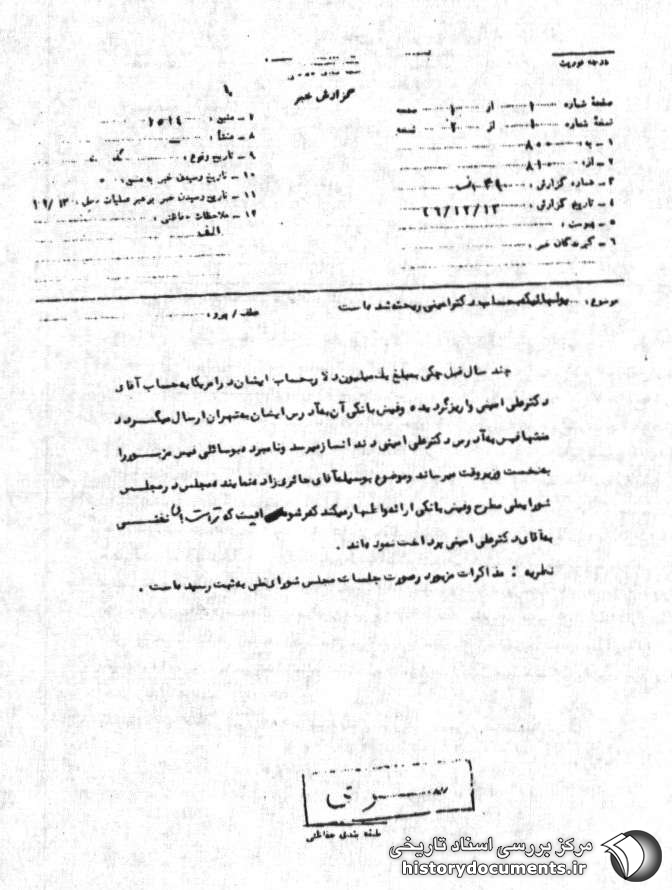 درجه فوریت
گزارش خبر
صفحهٔ شماره ۱ از ۱ صفحه
نسخهٔ شماره ۱ از ۲ نسخه
۱ – به : ۸۰۰
۲ – از : ۸۱۰
۳ – شماره گزارش :
۴ – تاریخ گزارش : ۴۶/۱۲/۱۳
۵ – پیوست :
۶ – گیرندگان خبر :
۷ – منبع : ۱۵۱۴
۸ – منشأ :
۹ – تاریخ وقوع :
۱۰ – تاریخ رسیدن خبر به منبع :
۱۱ – تاریخ رسیدن خبر به رهبر عملیات
۱۲ – ملاحظات حفاظتی :
الف
موضوع : پولهائیکه بحساب دکتر امینی ریخته شده است
عطف / پیرو :
چند سال قبل چکی بمبلغ یک میلیون دلار بحساب ایشان در امریکا به حساب آقای
دکتر علی امینی واریز گردیده وفیش بانکی آن به آدرس ایشان به تهران ارسال میگردد
منتها فیش به آدرس دکتر علی امینی در فرانسه میرسد ونامبرده بوسائلی فیش مزبور را
به نخست وزیر وقت میرساند وموضوع بوسیله آقای حائری زاده نماینده مجلس در مجلس
شورایملی مطرح وفیش بانکی ارائه واظهار میکند که نفتی
به آقای دکتر علی امینی پرداخت نموده اند .
نظریه : مذاکرات مزبور در صورت جلسات مجلس شورای ملی به ثبت رسیده است .
سری
طبقه بندی حفاظتی
مرکز بررسی اسناد تاریخی
historydocuments.ir